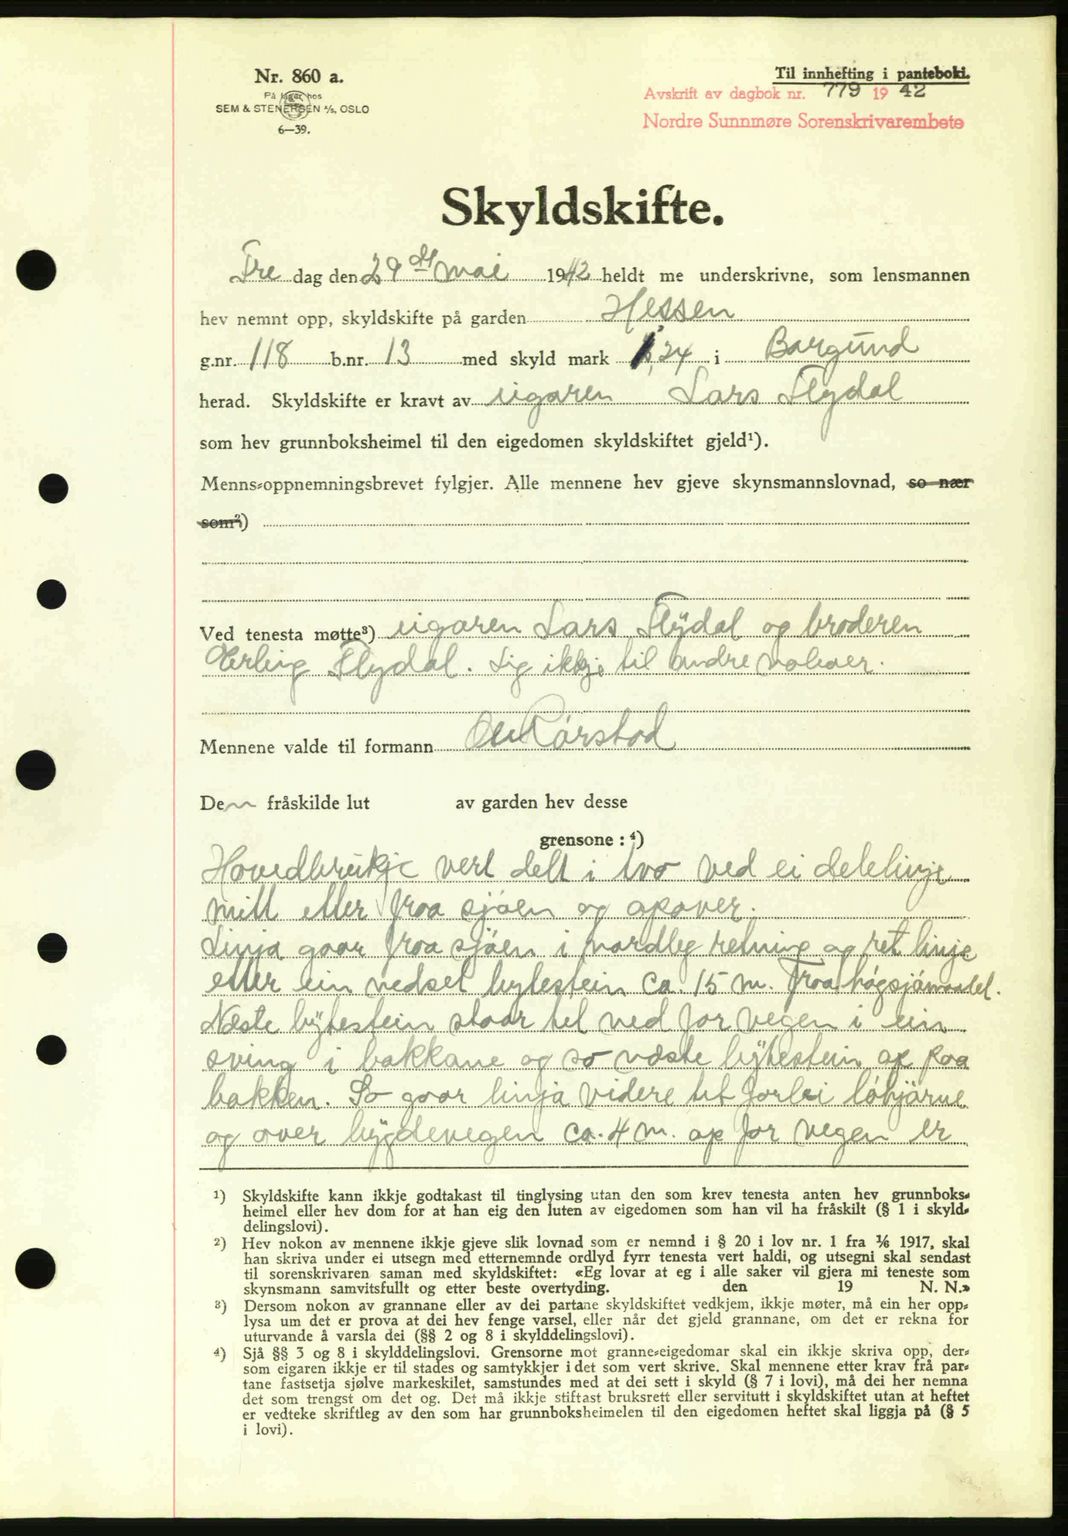 Nr. 860 a.
På lager hos
SEM & STENERSEN A/S, OSLO
6—39.
Til innhefting i panteboki.
Avskrift av dagbok nr. 779 19 42
Nordre Sunnmøre Sorenskrivarembete
Skyldskifte.
Fre dag den 29 de mai 1942 heldt me underskrivne, som lensmannen
hev nemnt opp, skyldskifte på garden Hessen
g.nr. 118 b.nr. 13 med skyld mark ,24 i Borgund
herad. Skyldskifte er kravt av eigaren Lars Flydal
som hev grunnboksheimel til den eigedomen skyldskiftet gjeld¹).
Menns-oppnemningsbrevet fylgjer. Alle mennene hev gjeve skynsmannslovnad, so nær
som²)
Ved tenesta møtte³) eigaren Lars Flydal og broderen
Erling Flydal. Lig ikkje til andre naboer.
Mennene valde til formann Ole Rørstad
Den fråskilde lut av garden hev desse
grensone : ⁴)
Hovedbruikje vert delt i tvo ved ei delelinje
mitt etter fraa sjøen og opover.
Linja gaar fraa sjøen i nordleg retning og ret linje
etter ein nedset bytestein ca 15 m. fraa høgsjømaalet.
Næste bytestein staar tet ved for vegen i ein
sving i bakkane og so næste bytestein op paa
bakken. So gaar linja videre tet forbi løhjørne
og over bygdevegen ca. 4 m. op for vegen er
¹) Skyldskifte kann ikkje godtakast til tinglysing utan den som krev tenesta anten hev grunnboks-
heimel eller hev dom for at han eig den luten av eigedomen som han vil ha fråskilt (§ 1 i skyld-
delingslovi).
²) Hev nokon av mennene ikkje gjeve slik lovnad som er nemnd i § 20 i lov nr. 1 fra 1/6 1917, skal
han skriva under ei utsegn med etternemnde ordlyd fyrr tenesta vert haldi, og utsegni skal sendast
til sorenskrivaren saman med skyldskiftet: «Eg lovar at eg i alle saker vil gjera mi teneste som
skynsmann samvitsfullt og etter beste overtyding. den 19 N. N.»
³) Dersom nokon av grannane eller av dei partane skyldskiftet vedkjem, ikkje møter, må ein her opp-
lysa um det er prova at dei hev fenge varsel, eller når det gjeld grannane, om det er rekna for
uturvande å varsla dei (§§ 2 og 8 i skylddelingslovi).
⁴) Sjå §§ 3 og 8 i skylddelingslovi. Grensorne mot granne-eigedomar skal ein ikkje skriva opp, der-
som eigaren ikkje er til stades og samtykkjer i det som vert skrive. Skal mennene etter krav frå par-
tane fastsetja sjølve markeskilet, samstundes med at dei sett i skyld (§ 7 i lovi), må dei her nemna
det som trengst om det og. Det må ikkje stiftast bruksrett eller servitutt i skyldskiftet utan at heftet
er vedteke skriftleg av den som har grunnboksheimelen til den eigedomen heftet skal liggja på (§ 5
i lovi).